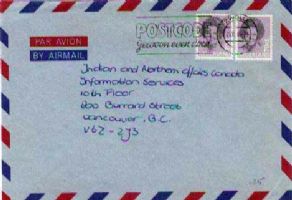 POSTCODE
PAR AVION
BY AIRMAIL
Indian and Northern affairs Canada
Information Services
10th Floor
800 Burrard Street
Vancouver, B.C.
V6Z-2J3